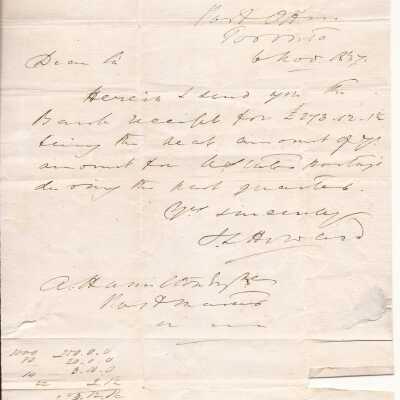 Post Office
Toronto
6 Nov 1837.
Dear Sir
Herein I send you the
Bank receipt for £273.12.12
being the amount of yr
amount for U States postage
during the past quarter.
Yrs sincerely
J S Howard
A. Hamilton Esqre
Postmaster
1000 250.0.0
20.0.0